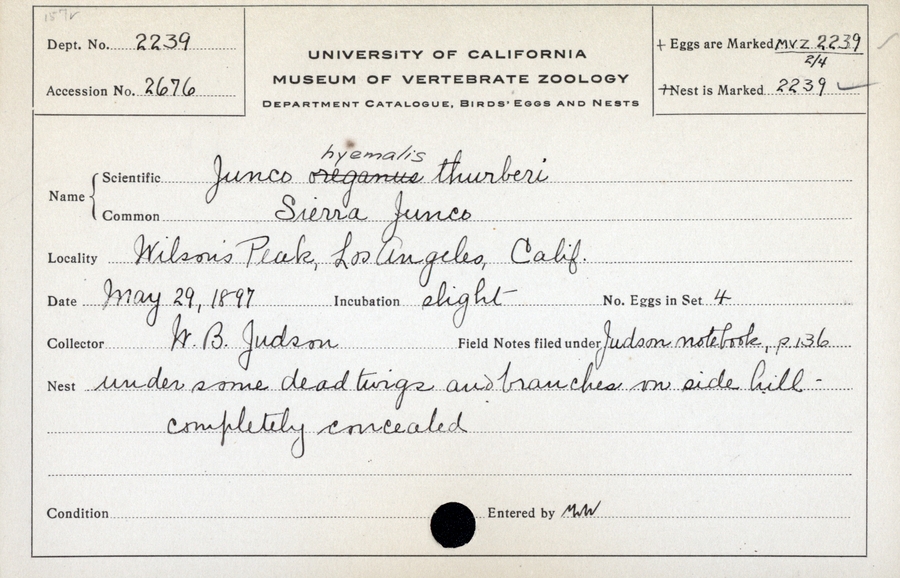 Dept. No. 2239
Accession No. 2676
UNIVERSITY OF CALIFORNIA
MUSEUM OF VERTEBRATE ZOOLOGY
DEPARTMENT CATALOGUE, BIRDS' EGGS AND NESTS
+ Eggs are Marked MVZ 2239
2/4
+Nest is Marked 2239
hyemalis
Name Scientific Junco oreganus thurberi
Common Sierra Junco
Locality Wilson's Peak, Los Angeles, Calif.
Date May 29, 1897 Incubation slight No. Eggs in Set 4
Collector W. B. Judson Field Notes filed under Judson notebook, p. 136
Nest under some dead twigs and branches on side hill -
completely concealed
Condition Entered by